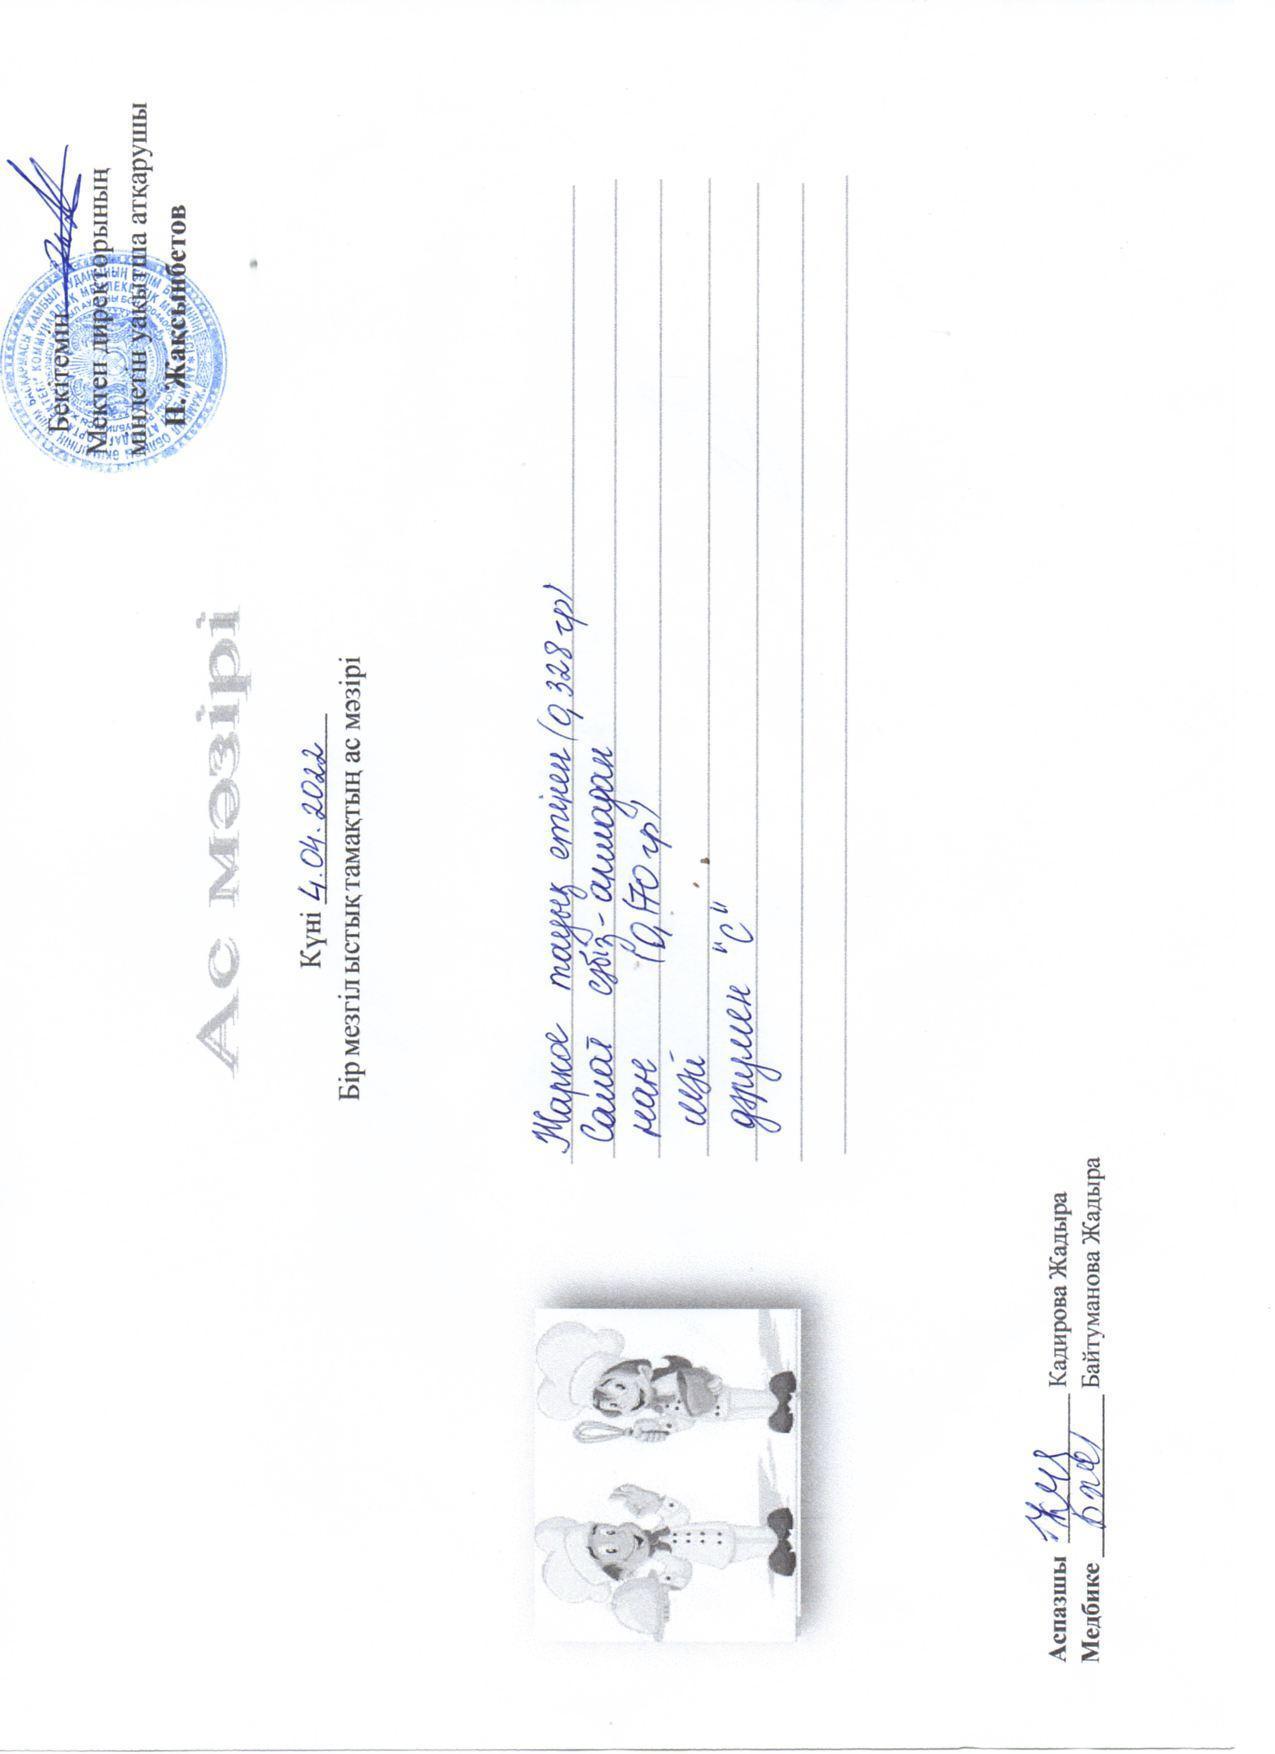 Бекітемін
Мектеп директорының
міндетін уақытша атқарушы
Н. Жақсынбетов
Ас мәзірі
Күні 4.04.2022
Бір мезгіл ыстық тамақтың ас мәзірі
Жаркое тауық етінен (0,328 гр)
Салат сәбіз-алмадан
нан (0,170 гр)
шәй
дәрумен "С"
Аспазшы Кадирова Жадыра
Медбике Байтуманова Жадыра